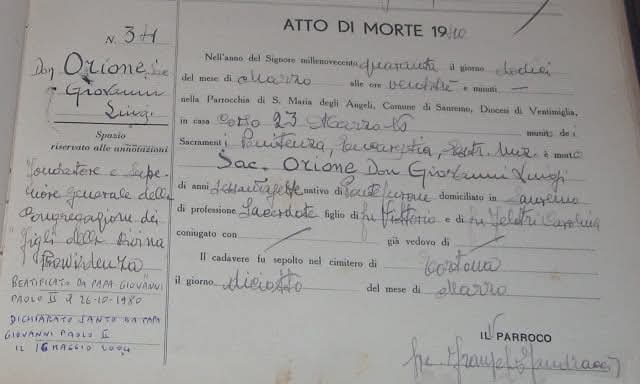 ATTO DI MORTE 1940
N. 34
Don Orione Sac
Giovanni
Luigi
Spazio
riservato alle annotazioni
Fondatore e Supe-
riore Generale della
Congregazione dei
Figli della Divina
Provvidenza
BEATIFICATO DA PAPA GIOVANNI
PAOLO II il 26-10-1980
DICHIARATO SANTO DA PAPA
GIOVANNI PAOLO II
IL 16 MAGGIO 2004
Nell'anno del Signore millenovecento quaranta il giorno dodici
del mese di Marzo alle ore ventitré e minuti —
nella Parrocchia di S. Maria degli Angeli, Comune di Sanremo, Diocesi di Ventimiglia,
in casa Corso 23 Marzo munito dei
Sacramenti Penitenza, Eucarestia, è morto
Sac. Orione Don Giovanni Luigi
di anni sessantasette nativo di Pontecurone domiciliato in Sanremo
di professione Sacerdote figlio di fu Vittorio e di fu Feltri Carolina
coniugato con / già vedovo di /
Il cadavere fu sepolto nel cimitero di Tortona
il giorno diciotto del mese di Marzo
IL PARROCO